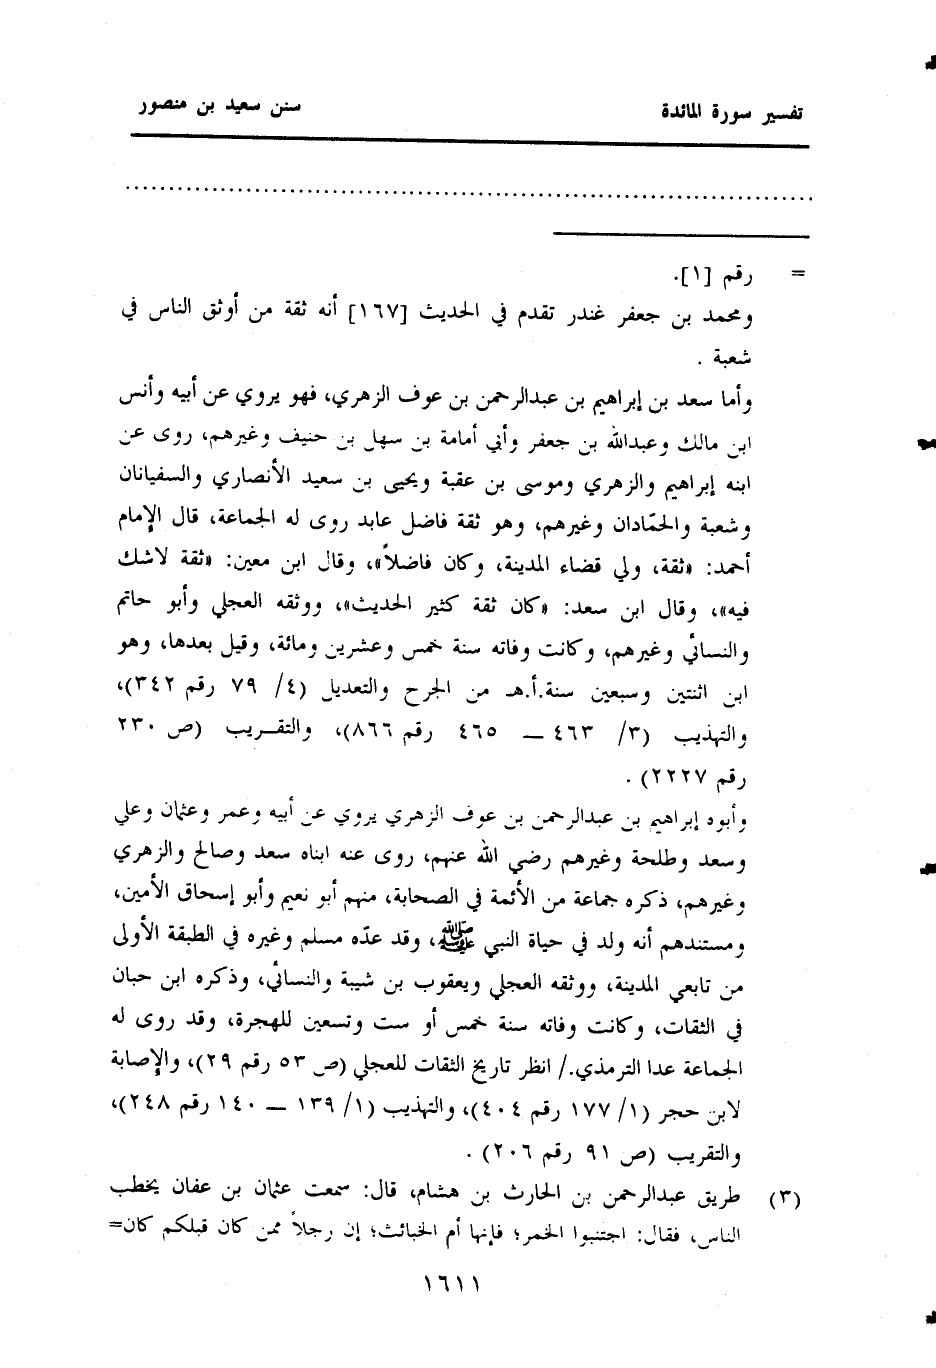 تفسير سورة المائدة سنن سعيد بن منصور
= رقم [١].
ومحمد بن جعفر غندر تقدم في الحديث [١٦٧] أنه ثقة من أوثق الناس في
شعبة .
وأما سعد بن إبراهيم بن عبدالرحمن بن عوف الزهري، فهو يروي عن أبيه وأنس
ابن مالك وعبدالله بن جعفر وأبي أمامة بن سهل بن حنيف وغيرهم، روى عن
ابنه إبراهيم والزهري وموسى بن عقبة ويحيى بن سعيد الأنصاري والسفيانان
وشعبة والحمّادان وغيرهم، وهو ثقة فاضل عابد روى له الجماعة، قال الإمام
أحمد: «ثقة، ولي قضاء المدينة، وكان فاضلاً»، وقال ابن معين: «ثقة لاشك
فيه»، وقال ابن سعد: «كان ثقة كثير الحديث»، ووثقه العجلي وأبو حاتم
والنسائي وغيرهم، وكانت وفاته سنة خمس وعشرين ومائة، وقيل بعدها، وهو
ابن اثنتين وسبعين سنة.أ.هـ من الجرح والتعديل (٤/ ٧٩ رقم ٣٤٢)،
والتهذيب (٣/ ٤٦٣ ــ ٤٦٥ رقم ٨٦٦)، والتقـريب (ص ٢٣٠
رقم ٢٢٢٧) .
وأبوه إبراهيم بن عبدالرحمن بن عوف الزهري يروي عن أبيه وعمر وعثمان وعلي
وسعد وطلحة وغيرهم رضي الله عنهم، روى عنه ابناه سعد وصالح والزهري
وغيرهم، ذكره جماعة من الأئمة في الصحابة، منهم أبو نعيم وأبو إسحاق الأمين،
ومستندهم أنه ولد في حياة النبي ﷺ، وقد عدّه مسلم وغيره في الطبقة الأولى
من تابعي المدينة، ووثقه العجلي ويعقوب بن شيبة والنسائي، وذكره ابن حبان
في الثقات، وكانت وفاته سنة خمس أو ست وتسعين للهجرة، وقد روى له
الجماعة عدا الترمذي./ انظر تاريخ الثقات للعجلي (ص ٥٣ رقم ٢٩)، والإصابة
لابن حجر (١/ ١٧٧ رقم ٤٠٤)، والتهذيب (١/ ١٣٩ ــ ١٤٠ رقم ٢٤٨)،
والتقريب (ص ٩١ رقم ٢٠٦) .
(٣) طريق عبدالرحمن بن الحارث بن هشام، قال: سمعت عثمان بن عفان يخطب
الناس، فقال: اجتنبوا الخمر؛ فإنها أم الخبائث؛ إن رجلاً ممن كان قبلكم كان=
١٦١١